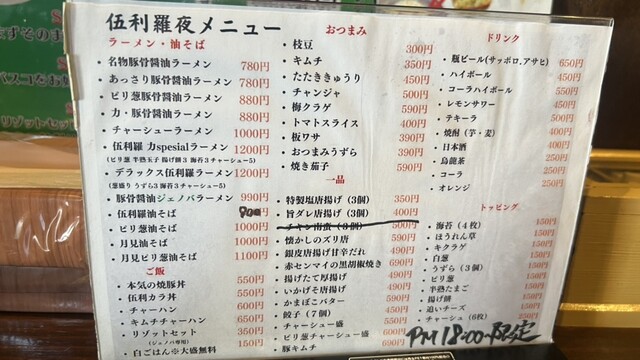 伍利羅夜メニュー
ラーメン・油そば
・名物豚骨醤油ラーメン 780円
・あっさり豚骨醤油ラーメン 780円
・ピリ葱豚骨醤油ラーメン 880円
・力・豚骨醤油ラーメン 880円
・チャーシューラーメン 1000円
・伍利羅 力spesialラーメン 1200円
(ピリ葱 半熟玉子 揚げ餅3 海苔3チャーシュー5)
・デラックス伍利羅ラーメン 1200円
(葱盛り うずら3 海苔3チャーシュー5)
・豚骨醤油ジェノバラーメン 990円
・伍利羅油そば 900
・ピリ葱油そば 1000円
・月見油そば 1000円
・月見ピリ葱油そば 1100円
ご飯
・本気の焼豚丼 550円
・伍利カラ丼 550円
・チャーハン 600円
・キムチチャーハン 650円
・リゾットセット 350円
(ジェノバ専用)
・白ごはん※大盛無料 150円
おつまみ
・枝豆 300円
・キムチ 350円
・たたききゅうり 450円
・チャンジャ 500円
・梅クラゲ 590円
・トマトスライス 400円
・板ワサ 390円
・おつまみうずら 390円
・焼き茄子 590円
一品
・特製塩唐揚げ(3個) 350円
・旨ダレ唐揚げ(3個) 400円
・チキン南蛮(3個) 500円
・懐かしのズリ唐 590円
・銀皮唐揚げ甘辛だれ 490円
・赤センマイの黒胡椒焼き 690円
・揚げたて厚揚げ 490円
・いかげそ唐揚げ 490円
・かまぼこバター 590円
・餃子(7個) 450円
・チャーシュー盛 550円
・ピリ葱チャーシュー盛 600円
・豚キムチ 690円
ドリンク
・瓶ビール(サッポロ,アサヒ) 650円
・ハイボール 450円
・コーラハイボール 550円
・レモンサワー 450円
・テキーラ 500円
・焼酎(芋・麦) 400円
・日本酒 400円
・烏龍茶 250円
・コーラ 250円
・オレンジ 250円
トッピング
・海苔(4枚) 150円
・ほうれん草 150円
・キクラゲ 150円
・白葱 150円
・うずら(3個) 150円
・ピリ葱 150円
・半熟たまご 150円
・揚げ餅 150円
・追いチーズ 150円
・チャーシュ(6枚) 250円
PM18:00~限定